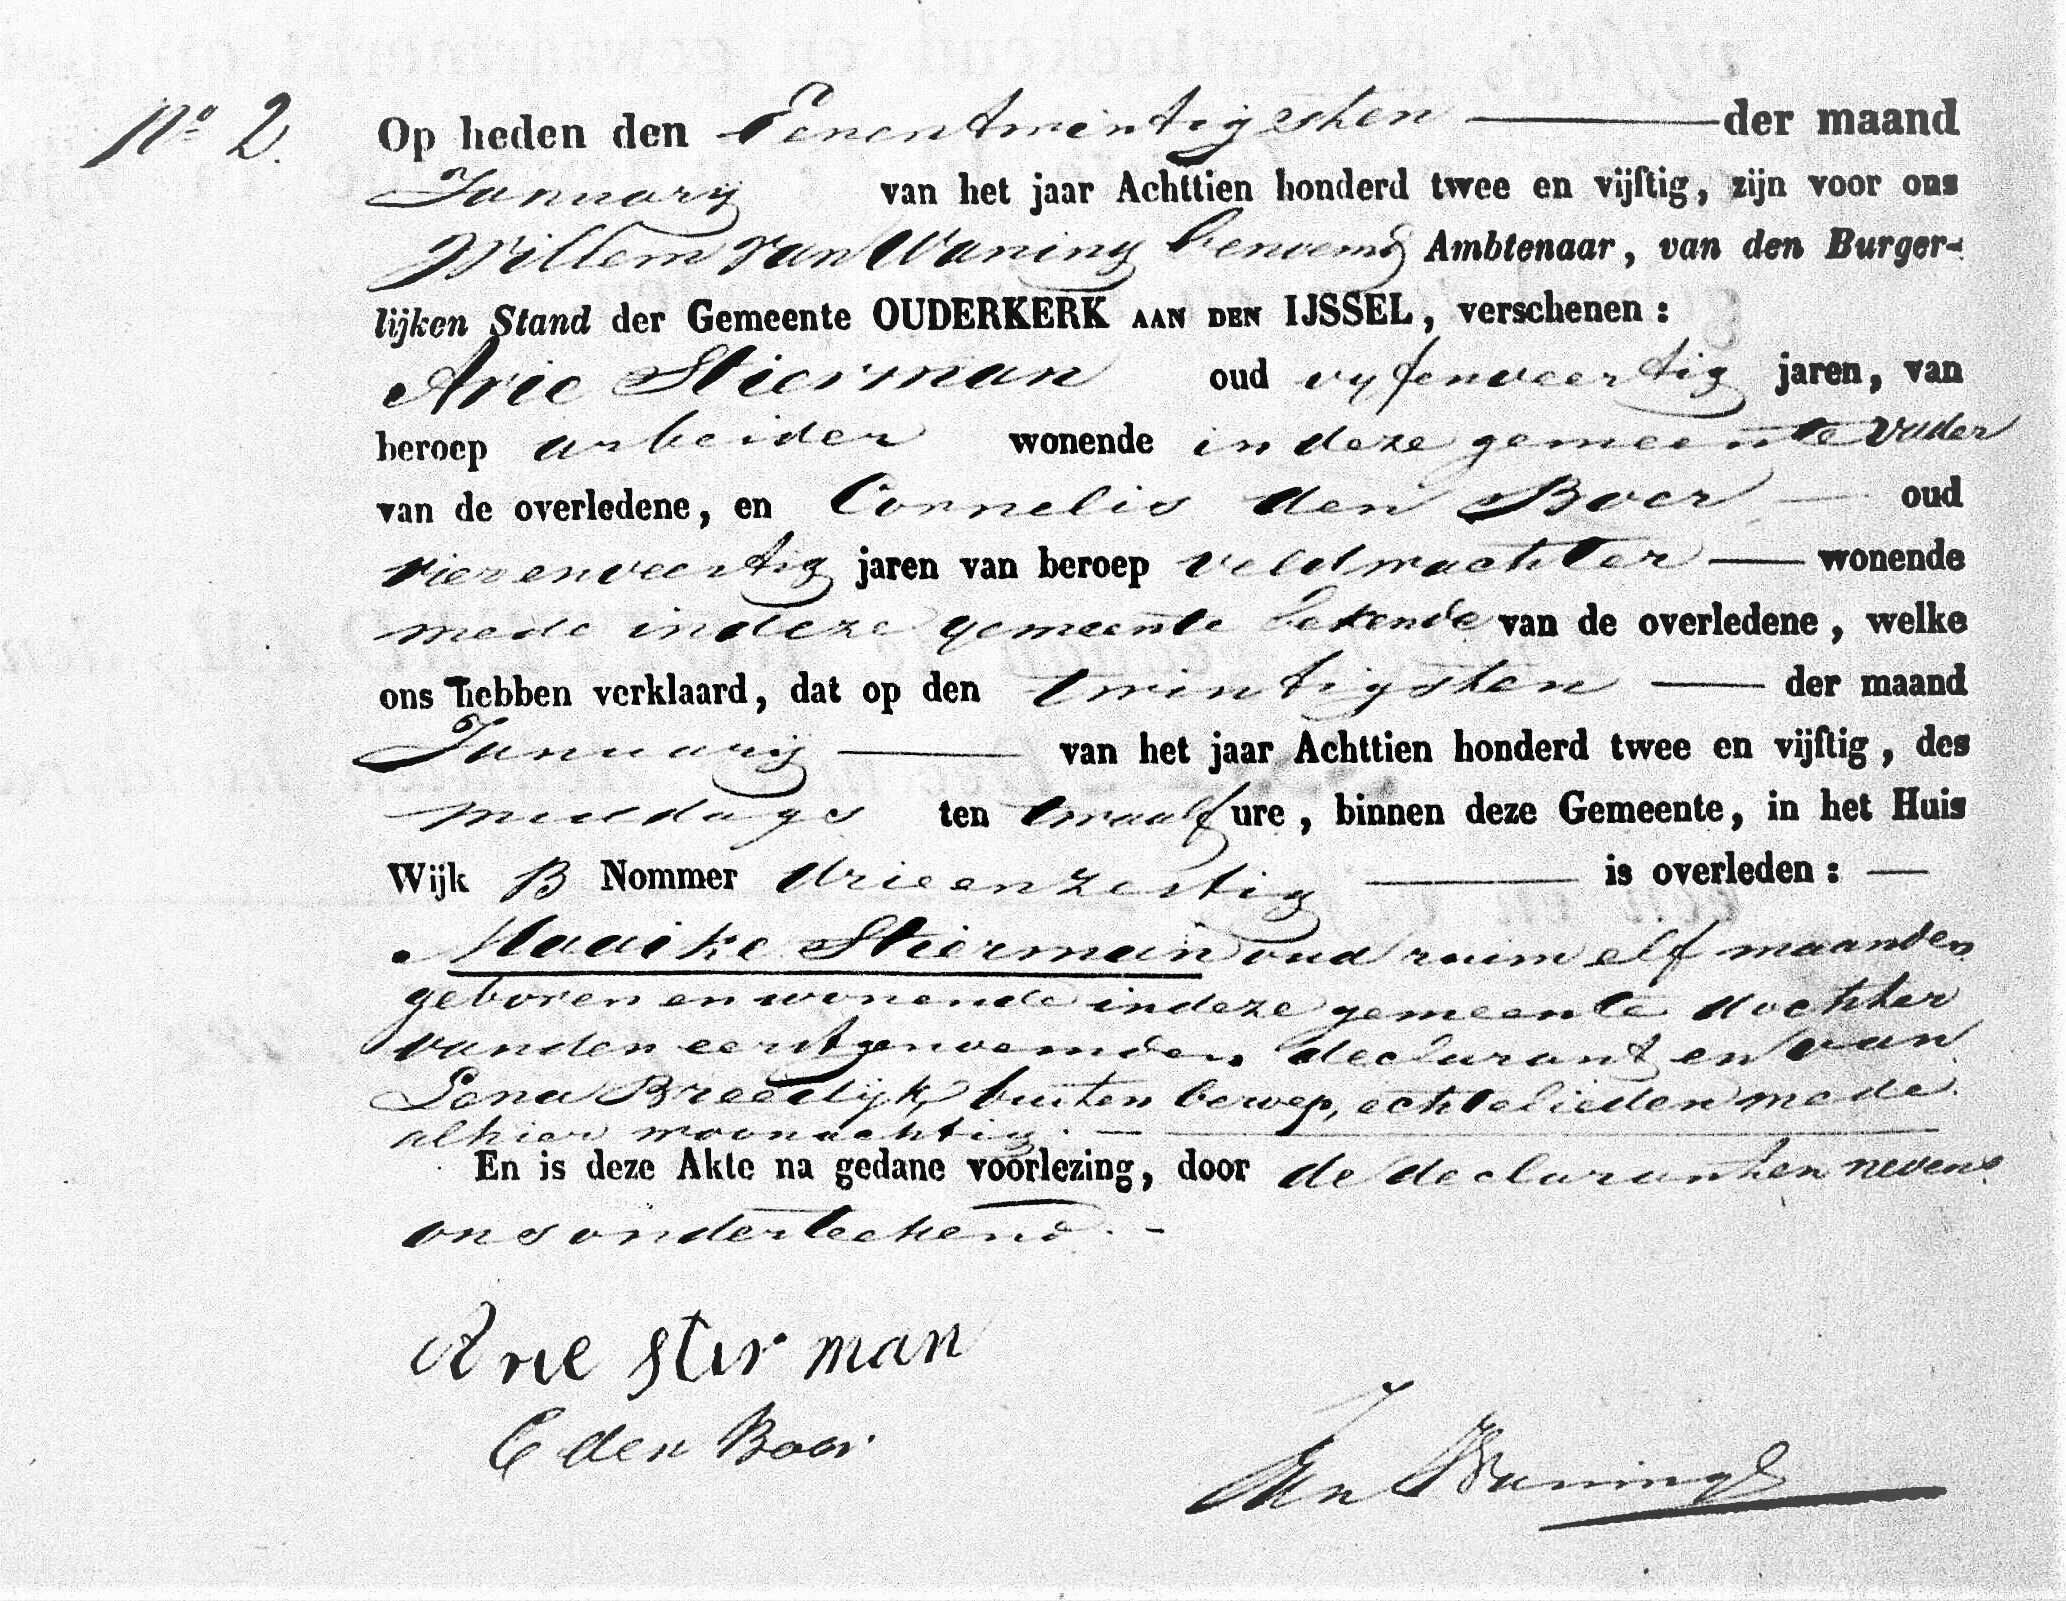 No 2. Op heden den Eenentwintigsten der maand
January van het jaar Achttien honderd twee en vijftig, zijn voor ons
Willem van Waning benoemd Ambtenaar, van den Burger-
lijken Stand der Gemeente OUDERKERK AAN DEN IJSSEL, verschenen:
Arie Stierman oud vyfenveertig jaren, van
beroep arbeider wonende in deze gemeente vader
van de overledene, en Cornelis den Boer oud
vierenveertig jaren van beroep veldwachter wonende
mede in deze gemeente bekende van de overledene, welke
ons hebben verklaard, dat op den twintigsten der maand
January van het jaar Achttien honderd twee en vijftig, des
middags ten twaalf ure, binnen deze Gemeente, in het Huis
Wijk B Nommer drieenzestig is overleden:
Maaike Stierman oud ruim elf maanden
geboren en wonende in deze gemeente dochter
van den eerstgenoemden declarant en van
Lena Breedijk, buiten beroep, echtelieden mede
alhier woonachtig.
En is deze Akte na gedane voorlezing, door de declaranten nevens
ons onderteekend.
Arie stirman
C den Boer
Waning